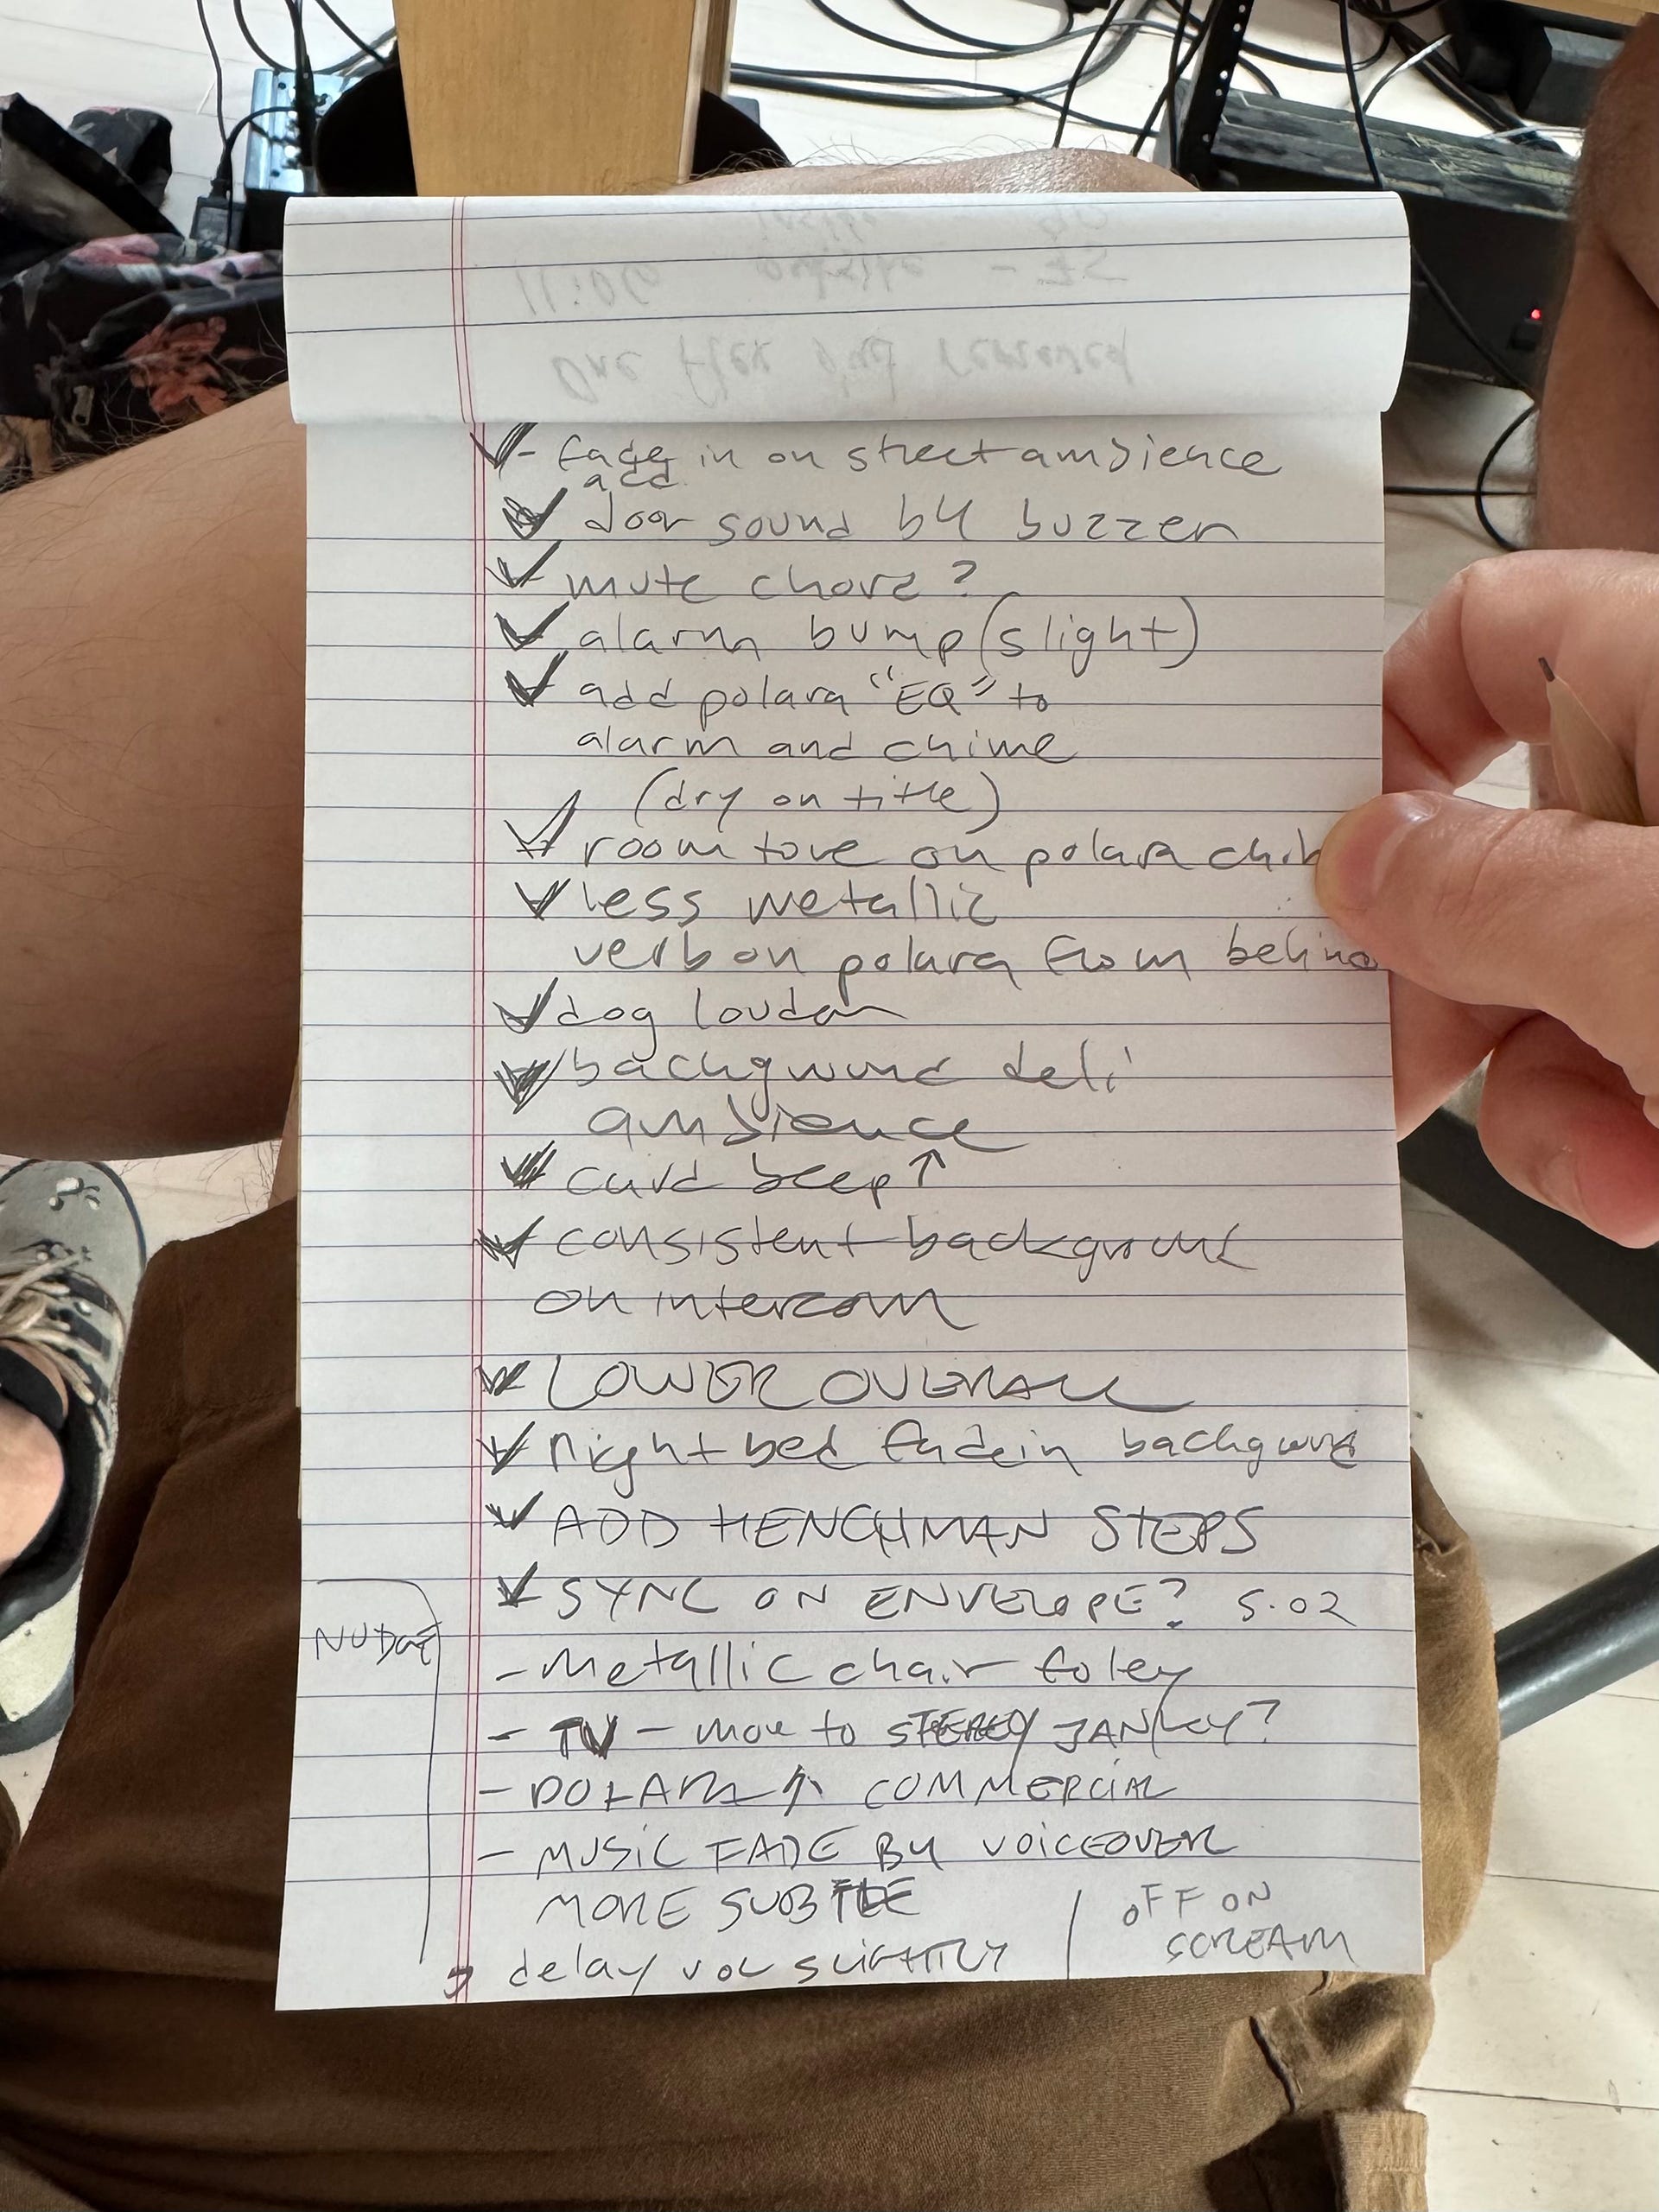 ✓- fade in on street ambience
add
✓ door sound by buzzer
✓ mute chord?
✓ alarm bump (slight)
✓ add polara "EQ" to
alarm and chime
(dry on title)
✓ room tone on polara
✓ less metallic
verb on polara from behind
✓ dog louder
✓ background deli
ambience
✓ card beep ↑
✓ consistent background
on intercom
✓ LOWER OVERALL
✓ night bed fade in background
✓ ADD HENCHMAN STEPS
✓ SYNC ON ENVELOPE? 5.02
NUDGE
- Metallic chair foley
- TV - move to STEREO/JANKY?
- POLARA ↑ COMMERCIAL
- MUSIC FADE BY VOICEOVER
MORE SUBTLE
OFF ON
SCREAM
delay vol SLIGHTLY